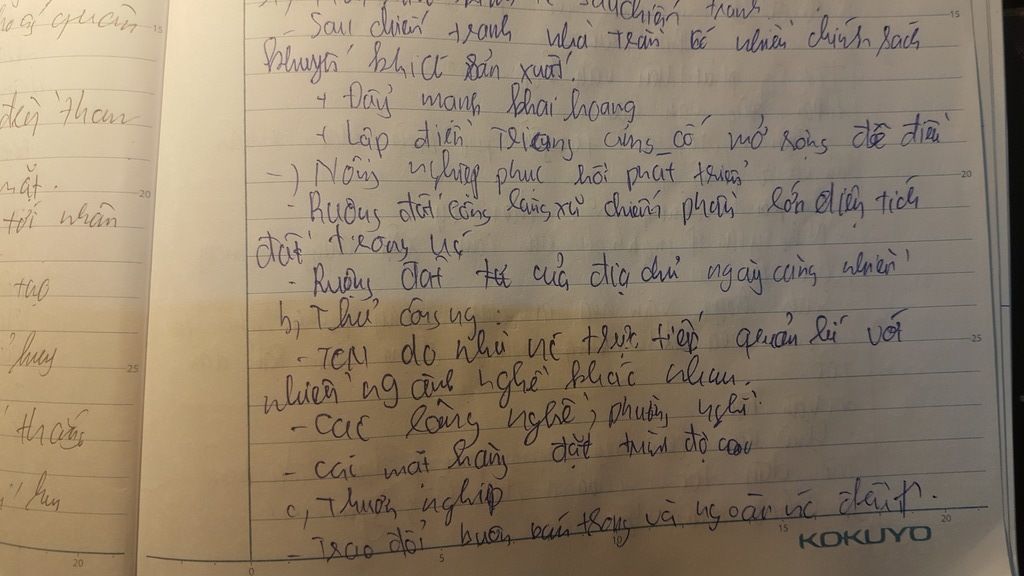 hoá quan
đẩy than
mặt.
tới nhân
tạo
huy
thống
sau chiến tranh
- Sau chiến tranh nhà trần có nhiều chính sách
khuyến khích sản xuất.
+ Đẩy mạnh khai hoang
+ Lập điền trang củng cố mở rộng đê điều
-) Nông nghiệp phục hồi phát triển
- Ruộng đất công làng xã chiếm phần lớn diện tích
đất trong nc
- Ruộng đất tư của địa chủ ngày càng nhiều
b, Thủ công ng:
- TCN do nhà nc trực tiếp quản lí với
nhiều ng ành nghề khác nhau.
- Các làng nghề, phường nghề
- Cái mặt hàng đạt trình độ cao
c, Thương nghiệp
- Trao đổi buôn bán trong và ngoài nc
KOKUYO
15
20
25
20
15
20
25
0
5
10
15
20